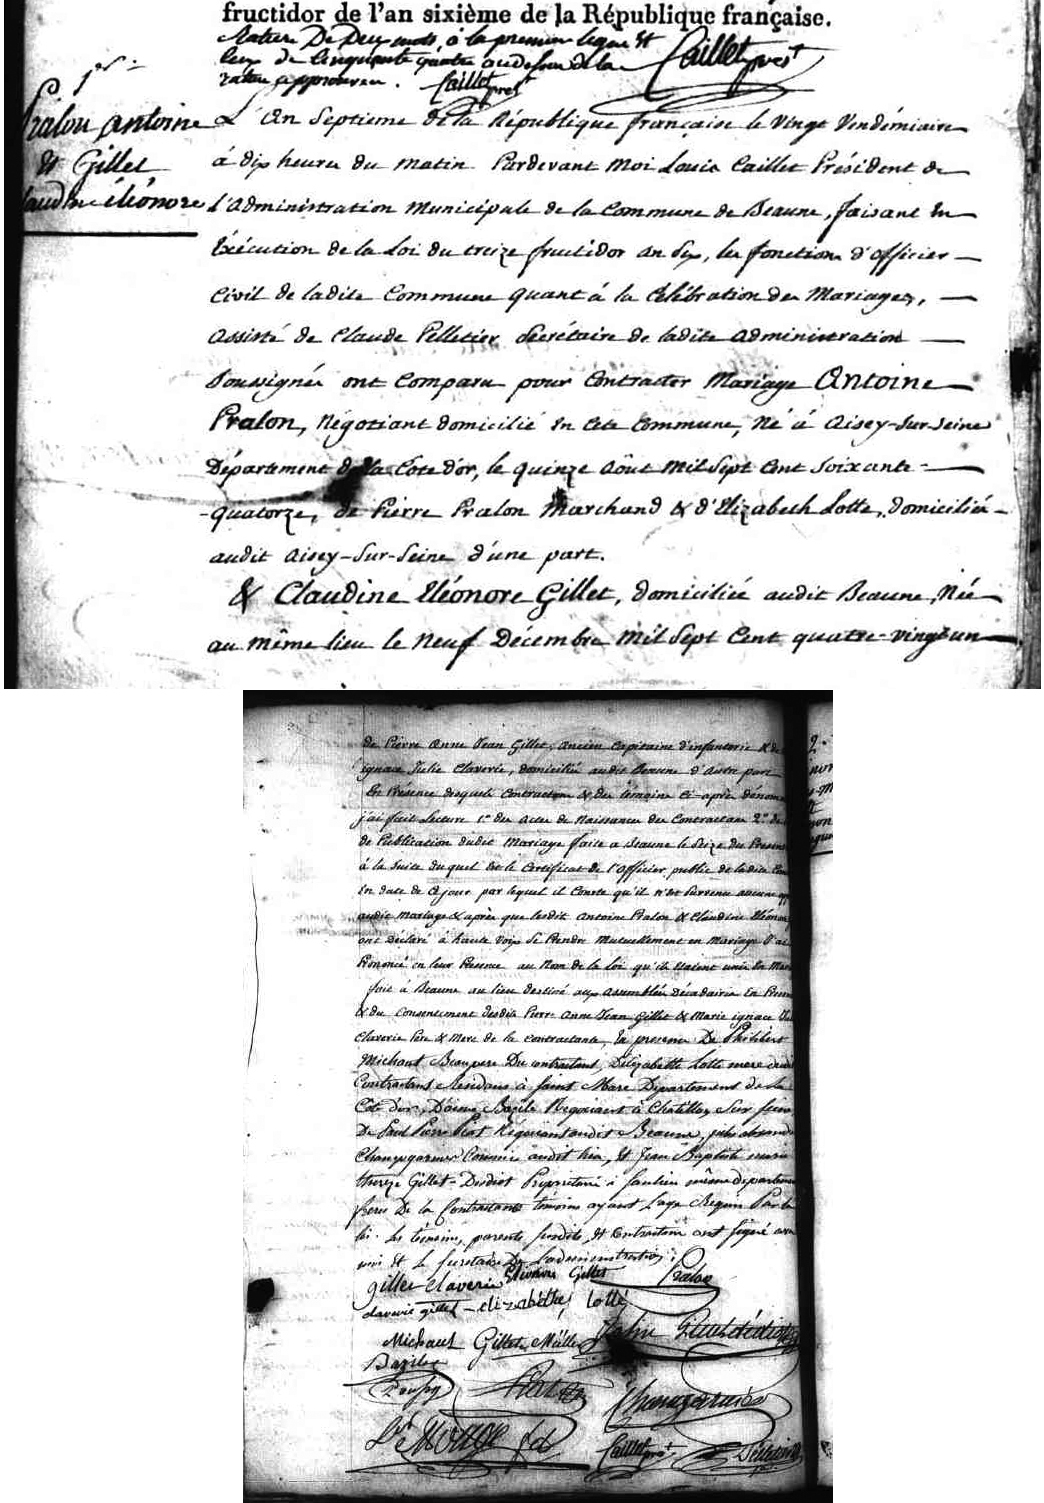 fructidor de l'an sixième de la République française.
Rature De Deux mots, à la premiere ligne &
ceux de Cinquante quatre au dessus de la
rature approuvée. Caillet prést
Caillet prést
1er
Pralon Antoine
& Gillet
Claudine éléonore
L'An Septieme de la République française le vingt Vendémiaire
á dix heures du matin Pardevant Moi Louis Caillet Président de
l'Administration Municipale de la Commune de Beaune, faisant en
Exécution de la Loi du treize fructidor an Six, les fonctions d'Officier
Civil de ladite Commune quant á la Célébration des Mariages,
Assisté de Claude Pelletier Secrétaire de ladite Administration
Soussignés ont Comparu pour Contracter Mariage Antoine
Pralon, Négociant domicilié en Cete Commune, Né á Aisey-Sur-Seine
Département de la Côte d'or, le quinze Août Mil Sept Cent Soixante
-quatorze, de Pierre Pralon Marchand & d'Elizabeth Lotte, domiciliés
audit Aisey-Sur-Seine d'une part.
& Claudine Eléonore Gillet, domiciliée audit Beaune, Née
au même lieu le Neuf Décembre Mil Sept Cent quatre-vingt un
de Pierre Anne Jean Gillet, ancien Capitaine d'infanterie & de
ignace Julie Claverie, domiciliés audit Beaune d'autre part
En Présence desquels Contractans & des témoins Ci-après dénom
j'ai fait Lecture 1° des Actes de Naissances des Contractans 2° de
de Publication dudit Mariage faite a Beaune le Seize du Present
à la Suite duquel est le Certificat de l'Officier public de ladite Com
En date de ce jour par lequel il Conste qu'il n'est Survenu aucune opp
audit Mariage & après que lesdit Antoine Pralon & Claudine Eléonore
ont déclaré à haute voix Se Prendre Mutuellement en Mariage J'ai
Prononcé en leur Présence au Nom de la Loi qu'ils étaient unis En Mar
fait à Beaune au lieu destiné aux Assemblées Décadaires En Présen
& du Consentement desdits Pierre Anne Jean Gillet & Marie ignace Julie
Claverie Pere & Mere de la contractante, En presence De Philibert
Michaut Beaupere Du contractant, D'élizabette Lotte mere dudit
Contractans Residans à Saint Marc Département de la
Côte d'or, D'aimé Bazile Negociant à Chatillon Sur Seine
De Paul Pierre Piat Négociant audit Beaune,
Changarnier Commis audit lieu, Et Jean Baptiste marie
thereze Gillet- Propriétaire à Saulieu même departement
frere De la Contractante témoins ayant L'age Requis Par la
loi. Les témoins, parents susdits, Et Contractans ont signé avec
moi Et le Secretaire De L'administration.
gillet Claverie Eléonore Gillet Pralon
claverie gillet - elizabette lotte
Michaut Gillet Müller
Bazile
Piat
Changarnier
Caillet prést Pelletier